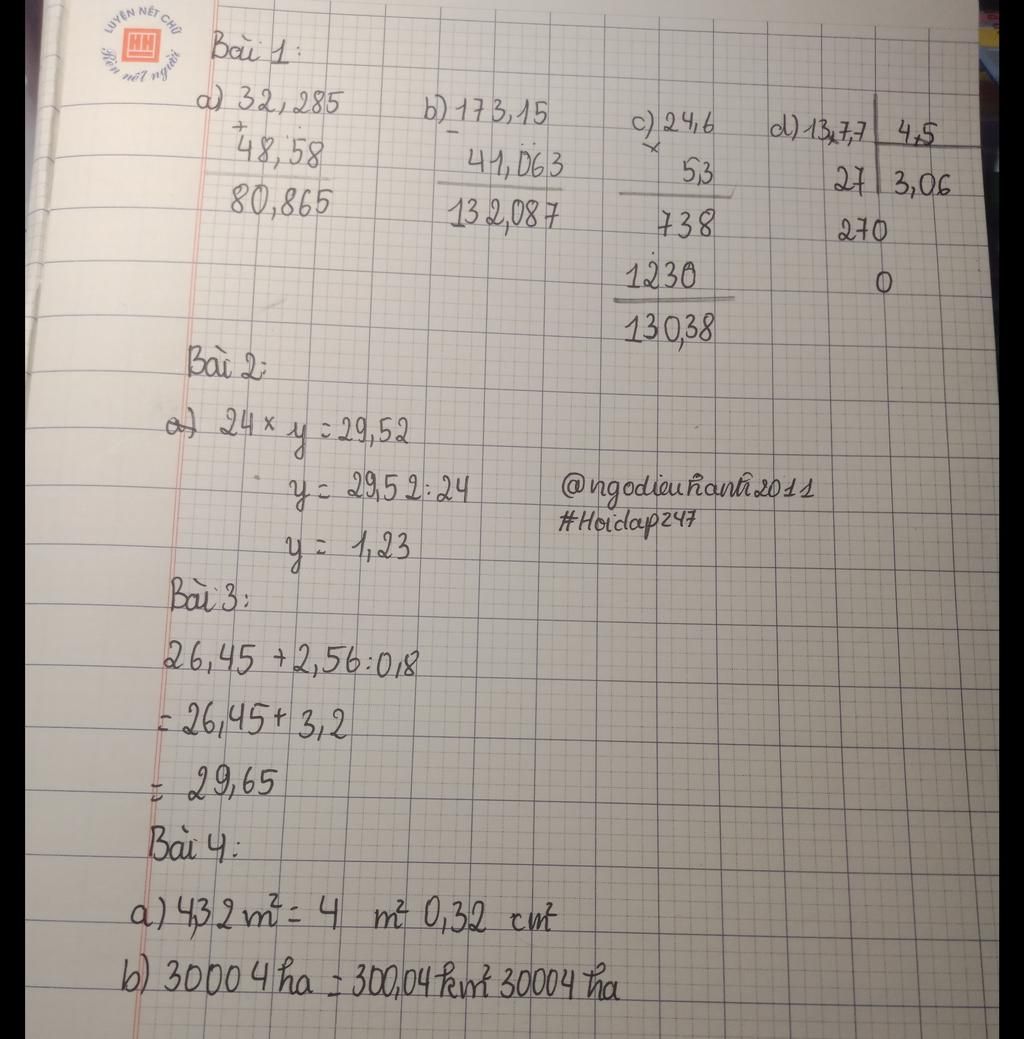 LUYỆN NÉT CHỮ
HH
Rèn nết người
Bài 1:
a) 32,285
+
48,58
80,865
b) 173,15
-
41,063
132,087
c) 24,6
×
5,3
738
1230
130,38
d) 13,7,7 4,5
27 3,06
270
0
Bài 2:
a) 24 × y = 29,52
y = 29,52 : 24
y = 1,23
@ngodieuhanh2011
#Hoidap247
Bài 3:
26,45 + 2,56 : 0,8
= 26,45 + 3,2
= 29,65
Bài 4:
a) 4,32 m² = 4 m² 0,32 cm²
b) 30004 ha = 300,04 km² 30004 ha